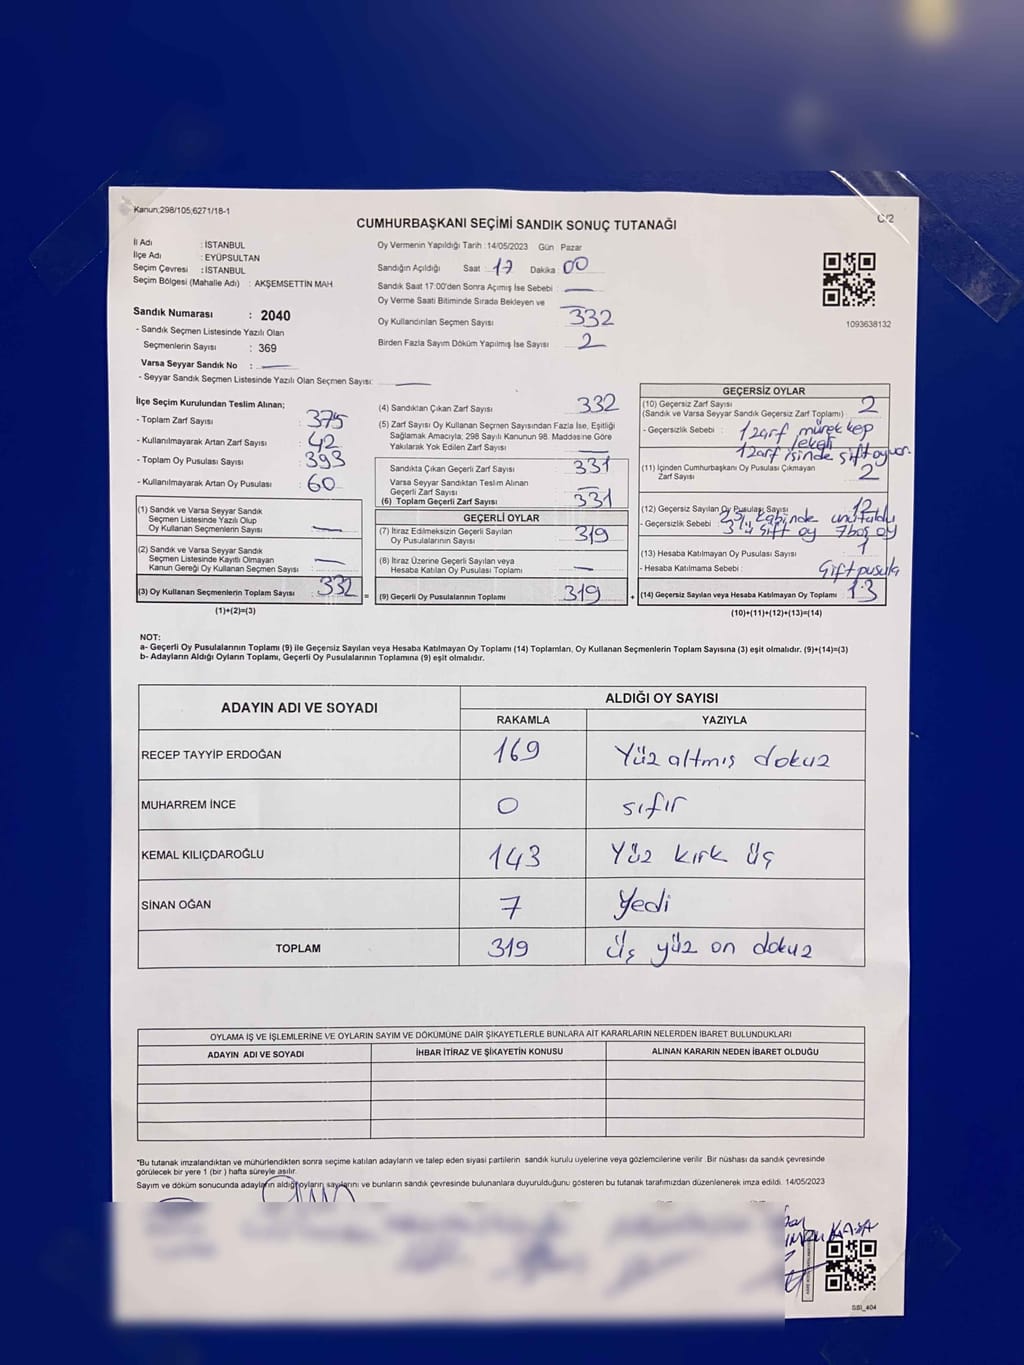 Kanun;298/105;6271/18-1
C/2
CUMHURBAŞKANI SEÇİMİ SANDIK SONUÇ TUTANAĞI
İl Adı : İSTANBUL
İlçe Adı : EYÜPSULTAN
Seçim Çevresi : İSTANBUL
Seçim Bölgesi (Mahalle Adı) : AKŞEMSETTİN MAH
Oy Vermenin Yapıldığı Tarih :14/05/2023 Gün : Pazar
Sandığın Açıldığı Saat : 17 Dakika : 00
Sandık Saat 17:00'den Sonra Açımış İse Sebebi : —
Oy Verme Saati Bitiminde Sırada Bekleyen ve
Oy Kullandırılan Seçmen Sayısı 332
Birden Fazla Sayım Döküm Yapılmış İse Sayısı 2
1093638132
Sandık Numarası : 2040
- Sandık Seçmen Listesinde Yazılı Olan
Seçmenlerin Sayısı : 369
Varsa Seyyar Sandık No : —
- Seyyar Sandık Seçmen Listesinde Yazılı Olan Seçmen Sayısı: —
İlçe Seçim Kurulundan Teslim Alınan;
- Toplam Zarf Sayısı 375
- Kullanılmayarak Artan Zarf Sayısı 42
- Toplam Oy Pusulası Sayısı 393
- Kullanılmayarak Artan Oy Pusulası 60
(1) Sandık ve Varsa Seyyar Sandık
Seçmen Listesinde Yazılı Olup
Oy Kullanan Seçmenlerin Sayısı —
(2) Sandık ve Varsa Seyyar Sandık
Seçmen Listesinde Kayıtlı Olmayan
Kanun Gereği Oy Kullanan Seçmen Sayısı —
(3) Oy Kullanan Seçmenlerin Toplam Sayısı 332
(1)+(2)=(3)
(4) Sandıktan Çıkan Zarf Sayısı 332
(5) Zarf Sayısı Oy Kullanan Seçmen Sayısından Fazla İse, Eşitliği
Sağlamak Amacıyla; 298 Sayılı Kanunun 98. Maddesine Göre
Yakılarak Yok Edilen Zarf Sayısı —
Sandıkta Çıkan Geçerli Zarf Sayısı 331
Varsa Seyyar Sandıktan Teslim Alınan
Geçerli Zarf Sayısı —
(6) Toplam Geçerli Zarf Sayısı 331
GEÇERLİ OYLAR
(7) İtiraz Edilmeksizin Geçerli Sayılan
Oy Pusulalarının Sayısı 319
(8) İtiraz Üzerine Geçerli Sayılan veya
Hesaba Katılan Oy Pusulası Toplamı —
= (9) Geçerli Oy Pusulalarının Toplamı 319 +
GEÇERSİZ OYLAR
(10) Geçersiz Zarf Sayısı 2
(Sandık ve Varsa Seyyar Sandık Geçersiz Zarf Toplamı)
- Geçersizlik Sebebi : 1 zarf mürekkep
lekeli
1 zarf isinde sift oy var.
(11) İçinden Cumhurbaşkanı Oy Pusulası Çıkmayan
Zarf Sayısı 2
(12) Geçersiz Sayılan Oy Pusulası Sayısı 12
- Geçersizlik Sebebi : kabinde unutuldu
sift oy 7 boş oy
(13) Hesaba Katılmayan Oy Pusulası Sayısı 1
- Hesaba Katılmama Sebebi : Gift pusula
(14) Geçersiz Sayılan veya Hesaba Katılmayan Oy Toplamı 13
(10)+(11)+(12)+(13)=(14)
NOT:
a- Geçerli Oy Pusulalarının Toplamı (9) ile Geçersiz Sayılan veya Hesaba Katılmayan Oy Toplamı (14) Toplamları, Oy Kullanan Seçmenlerin Toplam Sayısına (3) eşit olmalıdır. (9)+(14)=(3)
b- Adayların Aldığı Oyların Toplamı, Geçerli Oy Pusulalarının Toplamına (9) eşit olmalıdır.
ADAYIN ADI VE SOYADI
ALDIĞI OY SAYISI
RAKAMLA YAZIYLA
RECEP TAYYİP ERDOĞAN 169 Yüz altmış dokuz
MUHARREM İNCE 0 sıfır
KEMAL KILIÇDAROĞLU 143 Yüz kırk üç
SİNAN OĞAN 7 Yedi
TOPLAM 319 Üç yüz on dokuz
OYLAMA İŞ VE İŞLEMLERİNE VE OYLARIN SAYIM VE DÖKÜMÜNE DAİR ŞİKAYETLERLE BUNLARA AİT KARARLARIN NELERDEN İBARET BULUNDUKLARI
ADAYIN ADI VE SOYADI İHBAR İTİRAZ VE ŞİKAYETİN KONUSU ALINAN KARARIN NEDEN İBARET OLDUĞU
*Bu tutanak imzalandıktan ve mühürlendikten sonra seçime katılan adayların ve talep eden siyasi partilerin sandık kurulu üyelerine veya gözlemcilerine verilir .Bir nüshası da sandık çevresinde
görülecek bir yere 1 (bir ) hafta süreyle asılır.
Sayım ve döküm sonucunda adayların aldığı oyların sayılarını ve bunların sandık çevresinde bulunanlara duyurulduğunu gösteren bu tutanak tarafımızdan düzenlenerek imza edildi. 14/05/2023
SSI_404